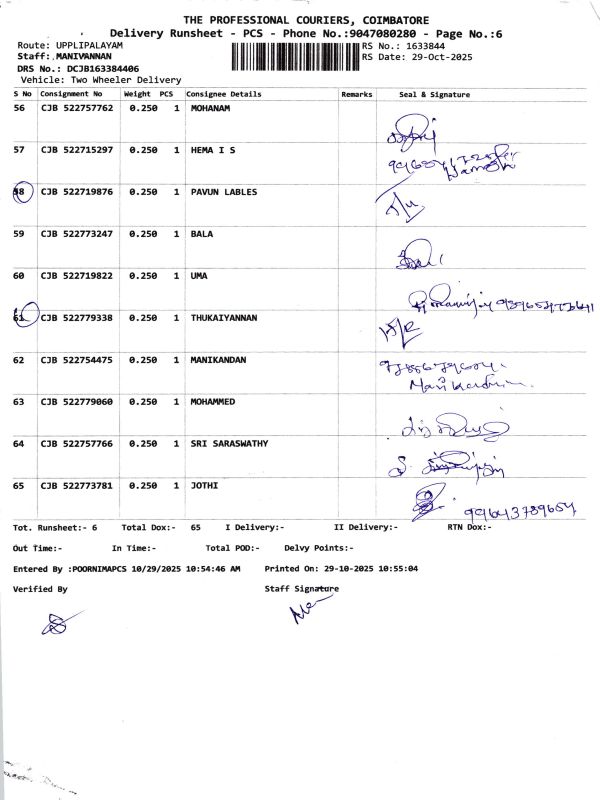 THE PROFESSIONAL COURIERS, COIMBATORE
Delivery Runsheet - PCS - Phone No.:9047080280 - Page No.:6
Route: UPPLIPALAYAM RS No.: 1633844
Staff: MANIVANNAN RS Date: 29-Oct-2025
DRS No.: DCJB163384406
Vehicle: Two Wheeler Delivery
S No Consignment No Weight PCS Consignee Details Remarks Seal & Signature
56 CJB 522757762 0.250 1 MOHANAM
57 CJB 522715297 0.250 1 HEMA I S
58 CJB 522719876 0.250 1 PAVUN LABLES
59 CJB 522773247 0.250 1 BALA
60 CJB 522719822 0.250 1 UMA
61 CJB 522779338 0.250 1 THUKAIYANNAN
62 CJB 522754475 0.250 1 MANIKANDAN
Manikandan
63 CJB 522779060 0.250 1 MOHAMMED
64 CJB 522757766 0.250 1 SRI SARASWATHY
65 CJB 522773781 0.250 1 JOTHI
Tot. Runsheet:- 6 Total Dox:- 65 I Delivery:- II Delivery:- RTN Dox:-
Out Time:- In Time:- Total POD:- Delvy Points:-
Entered By :POORNIMAPCS 10/29/2025 10:54:46 AM Printed On: 29-10-2025 10:55:04
Verified By Staff Signature